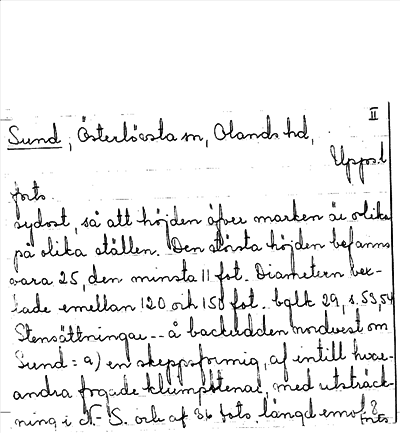 II
Sund, Österlövsta sn, Olands hd,
Upps. l
forts.
sydost, så att höjden öfver marken är olika
på olika ställen. Den största höjden befanns
vara 25, den minsta 11 fot. Diametern vex-
lade emellan 120 och 150 fot. bglk 29, s. 53, 54
Stensättningar -- å backudden nordvest om
Sund: a) en skeppsformig, af intill hvar-
andra fogade klumpstenar, med utsträck-
ning i N. - S. och af 84 fots längd
forts